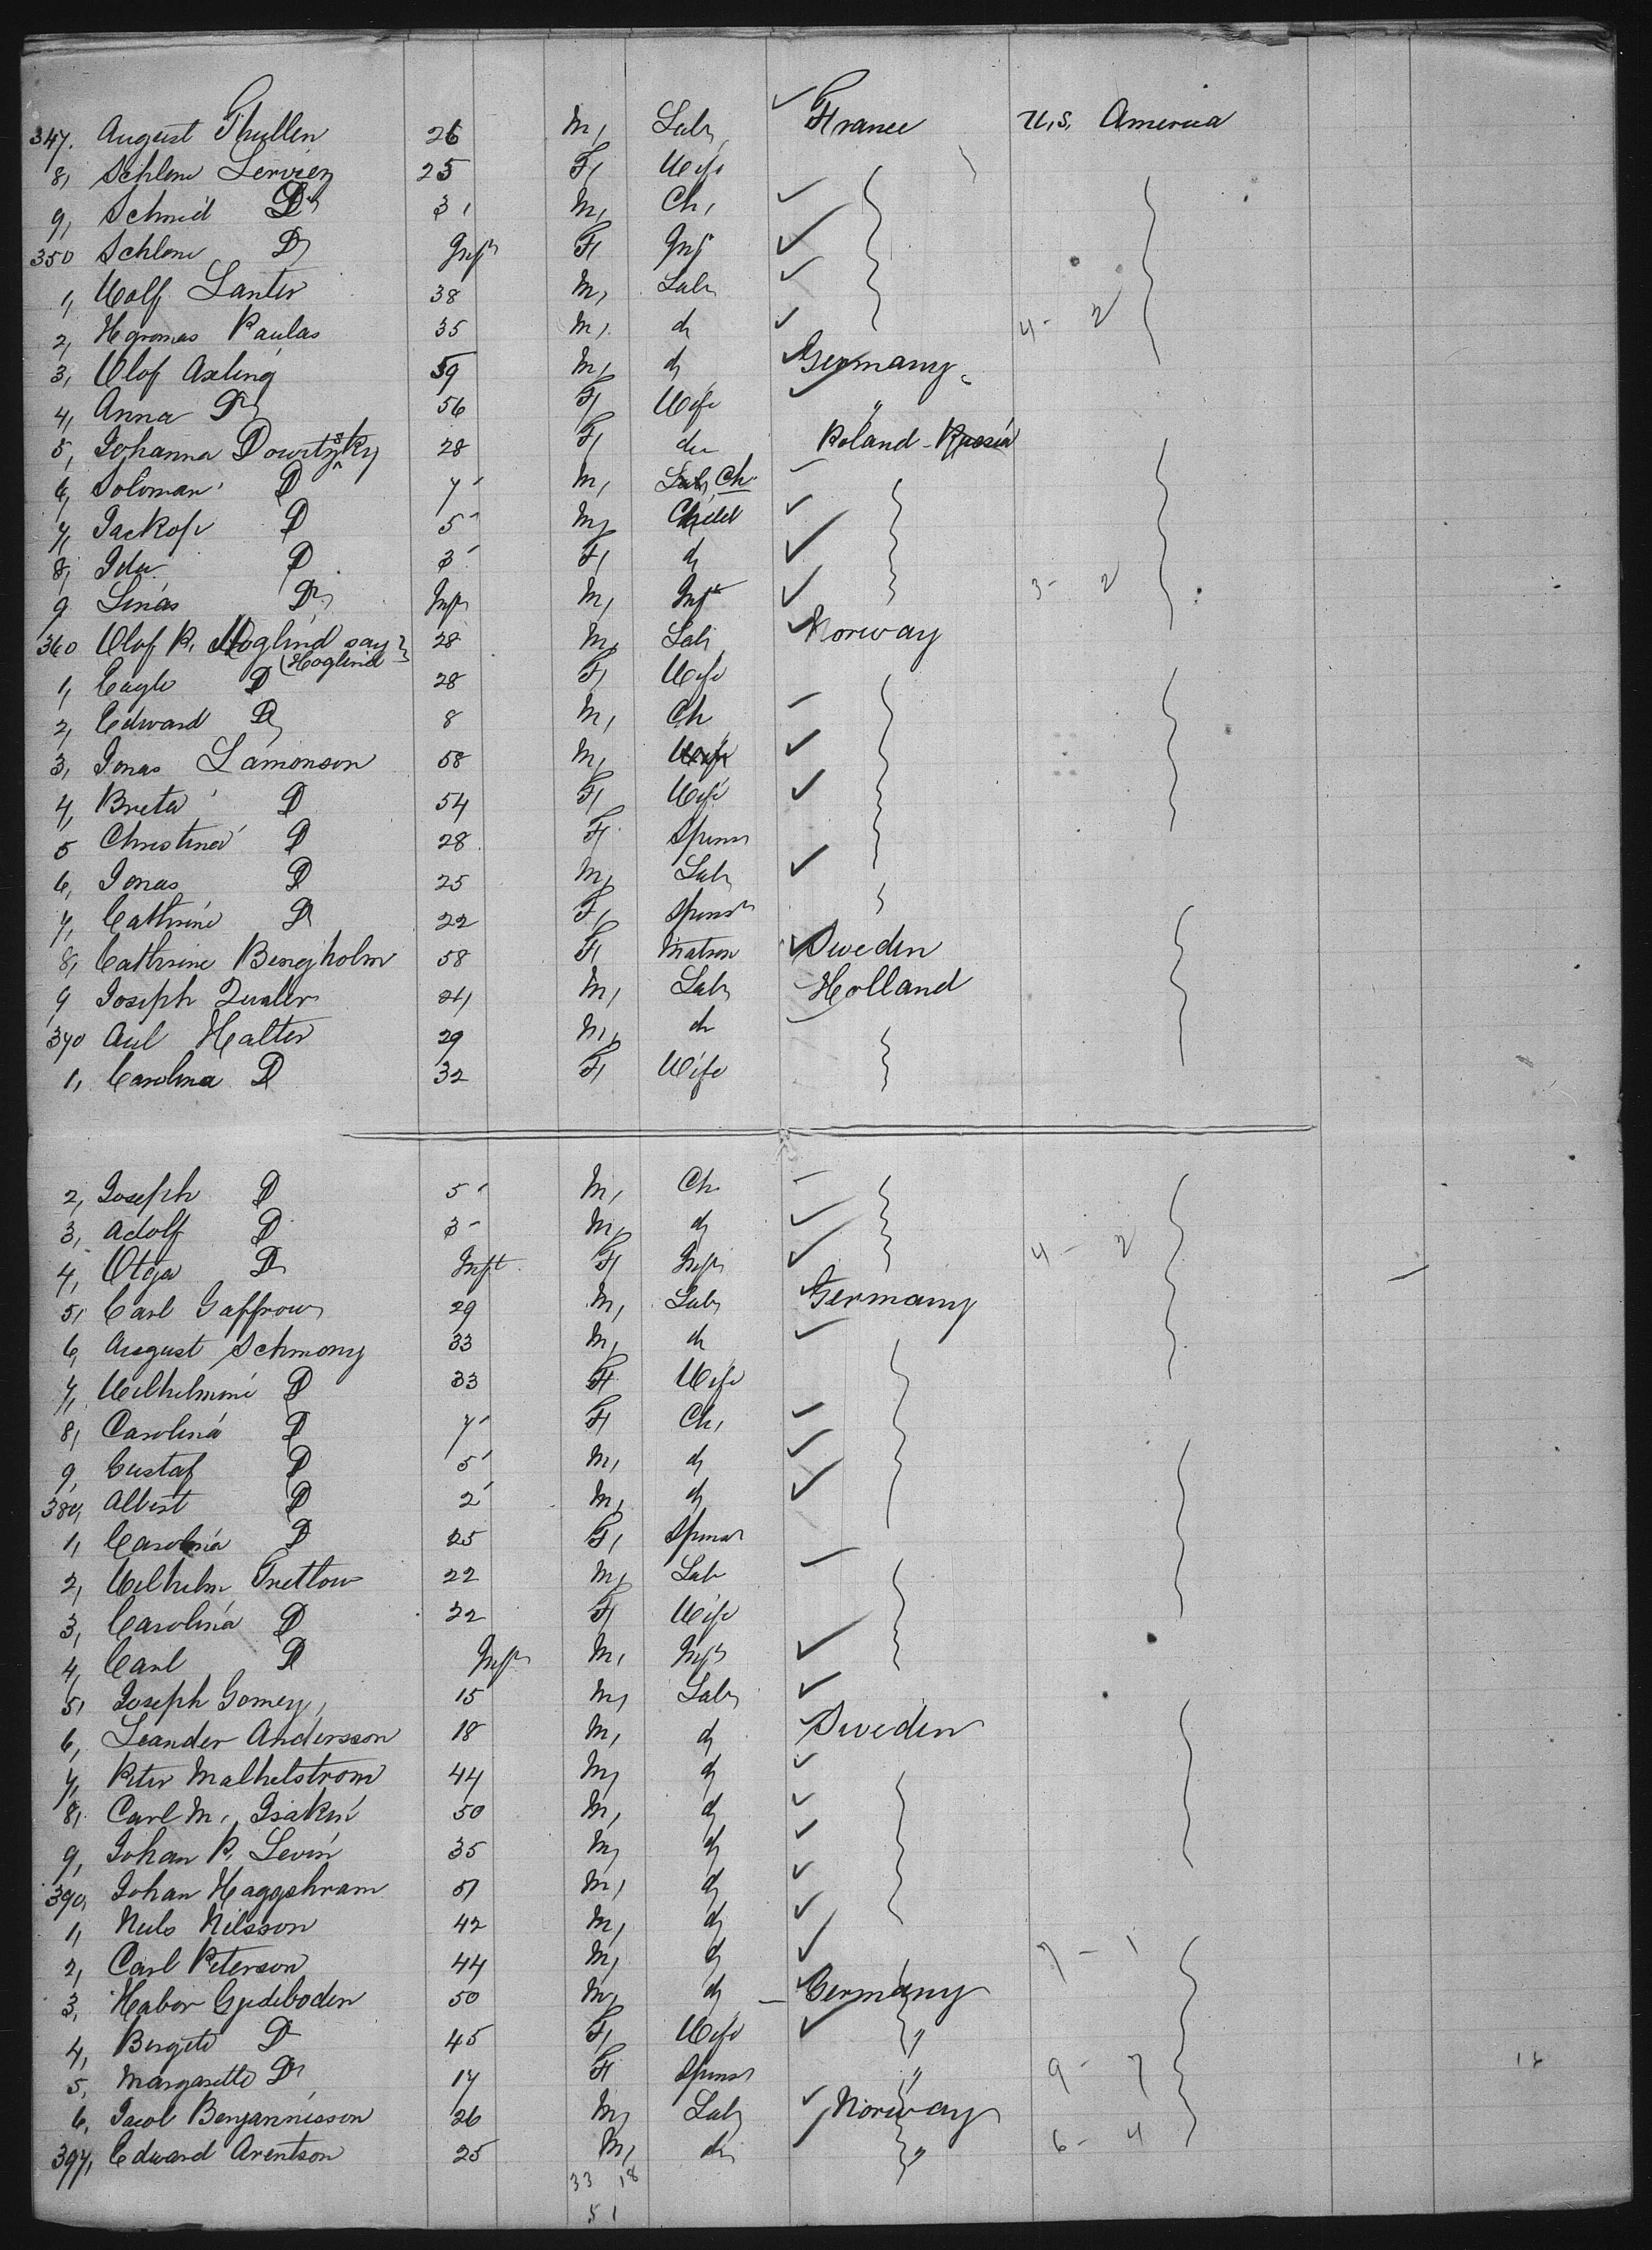 347. August Thullen 26 M, Labr France U.S. America
8, Schlone 25 F, Wife
9, Schmid Do 3, M, Ch,
350 Schlone Do Inft F, Inft
1, Wolf Lanter 38 M, Labr
2, Paulas 35 M, do
3, Olof Axling 59 M, do Germany
4, Anna Do 56 F, Wife "
5, Johanna Dowitzsky 28 F, do Poland-Russia
6, Soloman D 7 M, Ch
7, Jackof D 5 M, Child
8, Ida D 3 F, do 3- 2
9 Linas Do Inft M, Inft
360 Olof P. Hoglind say 28 M, Lab, Norway
(Hoglind
1, D 28 F, Wife
2, Edward Do 8 M, Ch
3, Jonas Lamonson 58 M,
4, Breta D 54 F, Wife
5 Christina D 28 F, Spinsr
6, Jonas D 25 M, Labr
7, Cathrine D 22 F, Spinsr
8, Cathrine Bergholm 58 F, Matron Sweden
9 Joseph 21, M, Labr Holland
370 Halter 29 M, do
1, Carolina D 32 F, Wife
2, Joseph D 5 M, Ch
3, Adolf D 3 M, do
4, Otga Do Inft F, Inft 4- 2
5, Carl Gaffrow 29 M, Labr Germany
6, August Schmony 33 M, do
7, Wilhelmine D 33 F, Wife
8, Carolina D 7 F, Ch,
9, Gustaf D 5 M, do
380, Albert D 2 M, do
1, Carolina D 25 F, Spinsr
2, Wilhelm Trettow 22 M, Lab
3, Carolina D 22 F, Wife
4, Carl D Inft M, Inft
5, Joseph Gomey, 15 M, Labr
6, Leander Andersson 18 M, do Sweden
7, Peter Malhelstrom 44 M, do
8, Carl M. Isakin 50 M, do
9, Johan P. Levin 35 M, do
390, Johan Haggshram 51 M, do
1, Nils Nilsson 42 M, do
2, Carl Peterson 44 M, do 7 - 1
3, Habor Gudeboden 50 M, do Germany
4, Bergete D 45 F, Wife "
5, Margarette Do 17 F, Spinsr " 9- 7
6, Jacob Benjannisson 26 M, Labr Norway
397, Edward Arentson 25 M, do " 6- 4
33 18
51